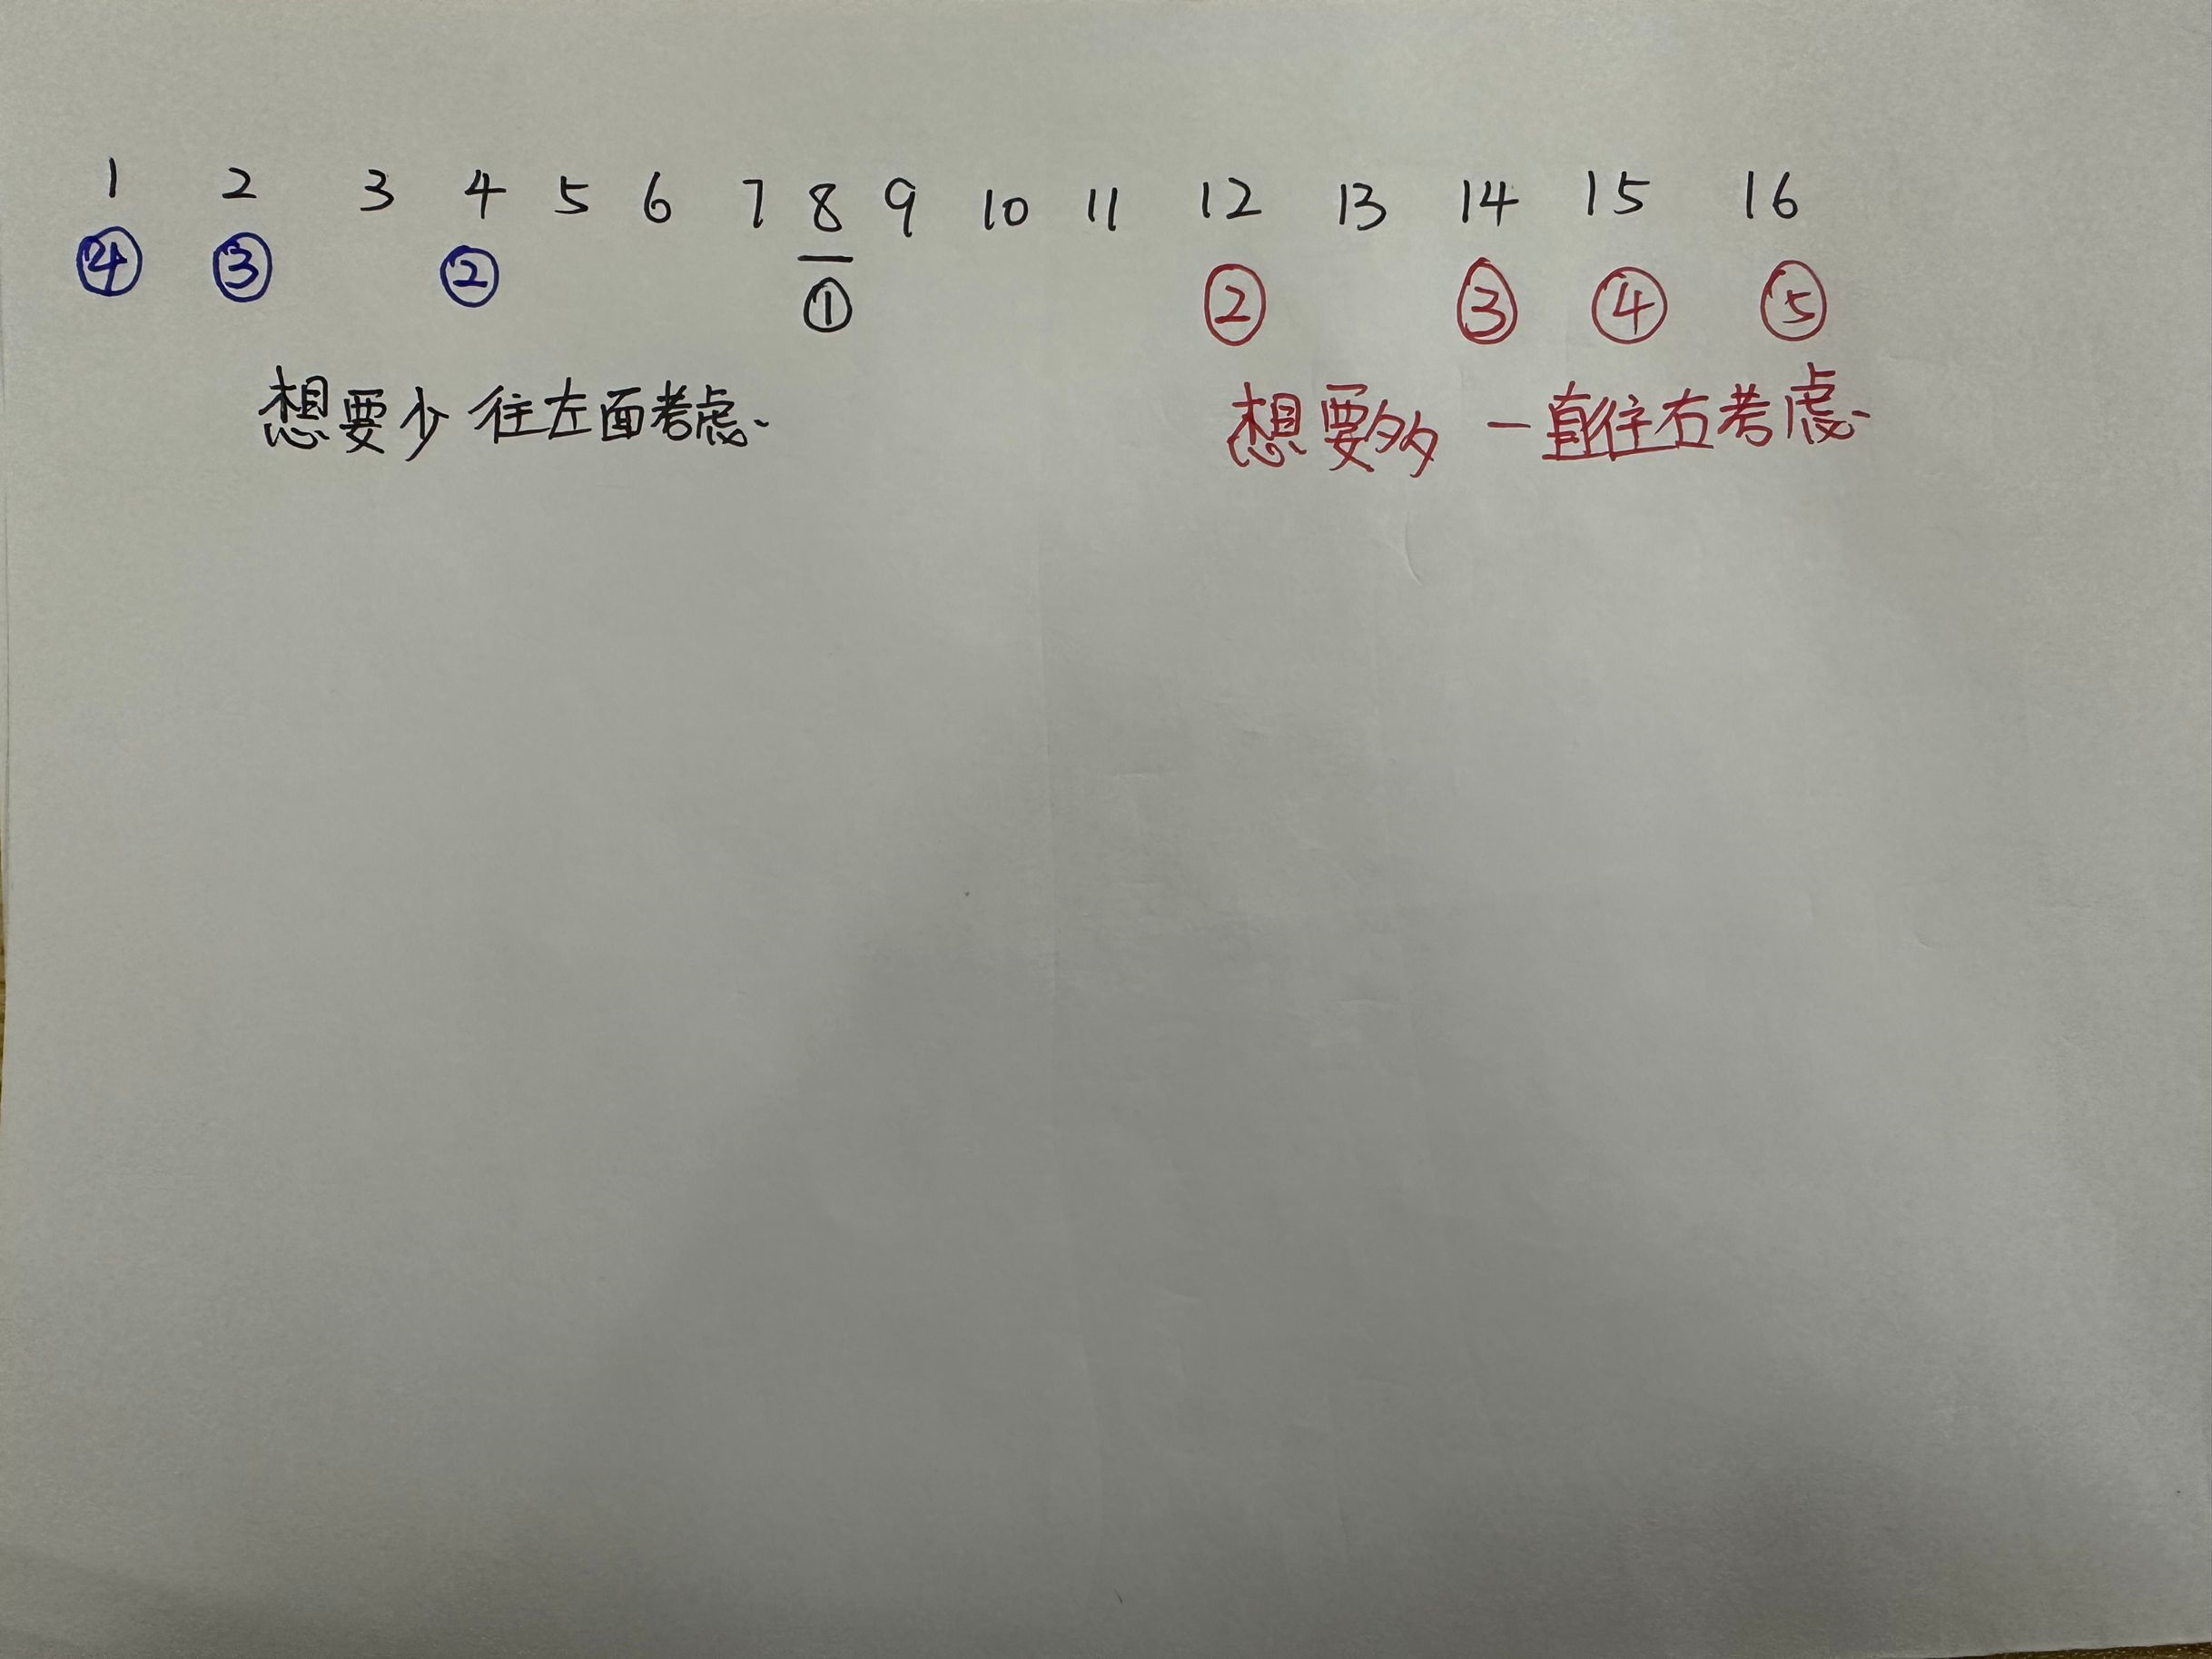 1 2 3 4 5 6 7 8 9 10 11 12 13 14 15 16
④ ③ ② ① ② ③ ④ ⑤
想要少 往左面考虑、 想要多 一直往右考虑、